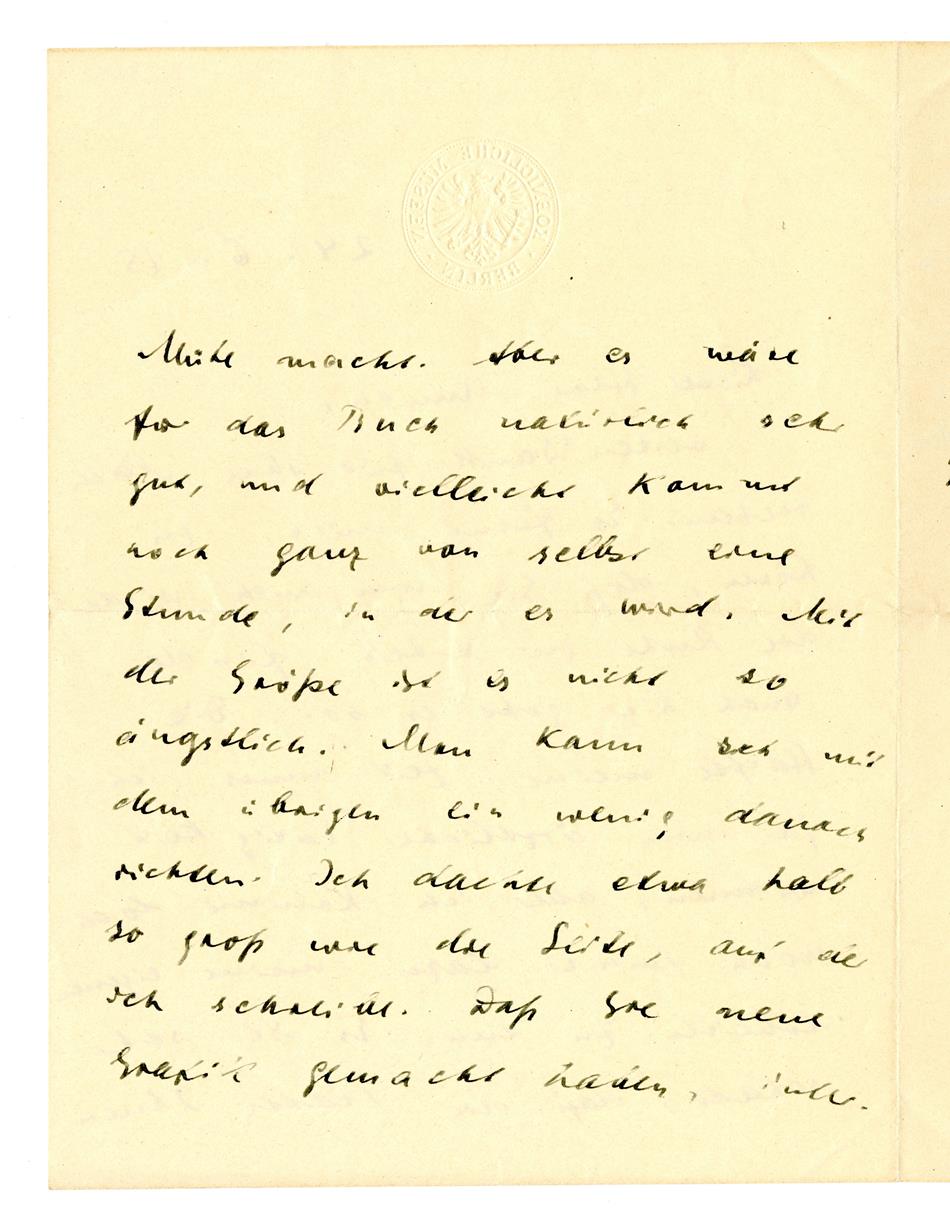 KOENIGLICHE MUSEEN · BERLIN ·
Mühe macht. Aber es wäre
für das Buch natürlich sehr
gut, und vielleicht kommt
noch ganz von selbst eine
Stunde, in der es wird. Mit
der Größe ist es nicht so
ängstlich. Man kann sich mit
dem übrigen ein wenig danach
richten. Ich dachte etwa halb
so groß wie die Seite, auf der
ich schreibe. Daß Sie neue
Grafik gemacht haben, inter-